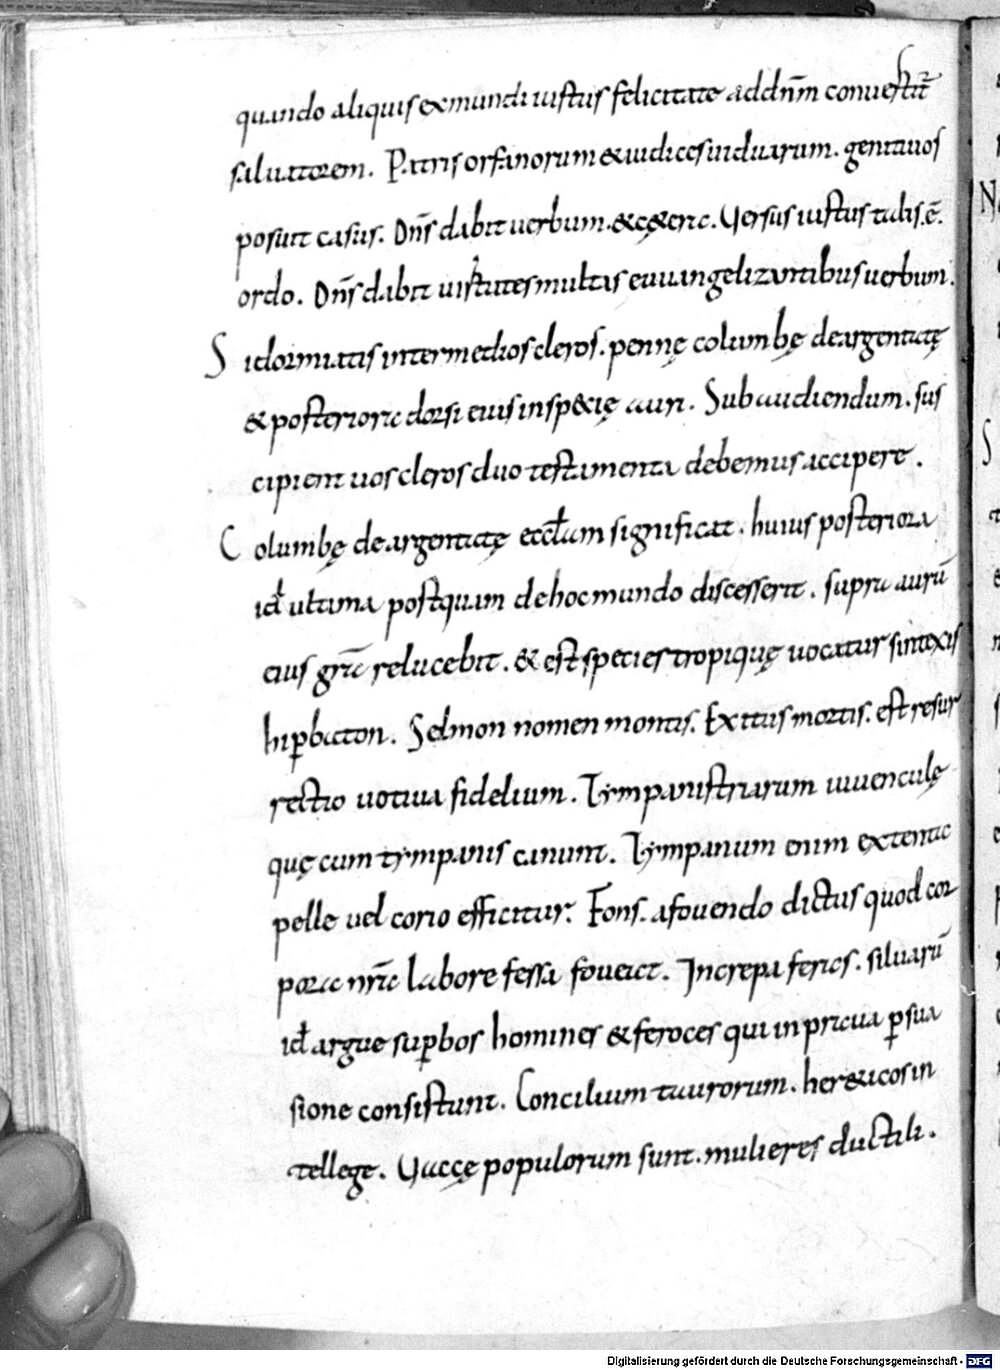 quando aliquis exmundi iustus felicitate addnm̄ conuertit̄
saluatorem. Patris orfanorum & iudices uiduarum. genitiuos
posuit casus. Dn̄s dabit uerbum. & cętera. Versus iustus talis ē.
ordo. Dn̄s dabit uirtutes multas euuangelizantibus uerbum.
Si dormiatis intermedios cleros. pennę columbę deargentatę
& posteriora dorsi eius inspecię auri. Subaudiendum. sus
cipient uos cleros duo testamenta debemus accipere.
Columbę deargentatę eccłam significat. huius posteriora
id ultima postquam dehoc mundo discesserit. supra aurū
eius grā relucebit. & est species tropi quę uocatur sintexis
hiꝑbaton. Selmon nomen montis. Exitus mortis. est resur
rectio uotiua fidelium. Tympanistriarum iuuenculę
quę cum tympanis canunt. Tympanum enim extenta
pelle uel corio efficitur. Fons. afouendo dictus quod cor
pora nrā labore fessa foueat. Increpa feras. siluarū
id argue suꝑbos homines & feroces qui in praua ꝑsua
sione consistunt. Concilium taurorum. hereticos in
tellege. Vaccę populorum sunt. mulieres ductili.
Digitalisierung gefördert durch die Deutsche Forschungsgemeinschaft - DFG